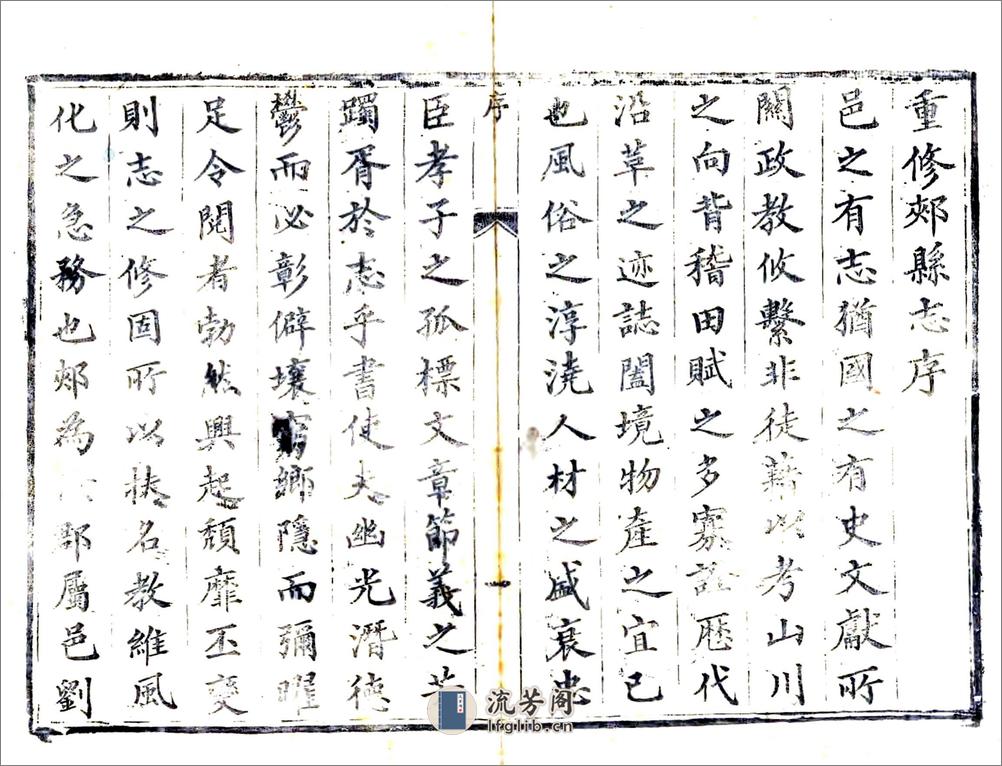 重修郟縣志序
邑之有志猶國之有史文獻所
關政教攸繫非徒藉以考山川
之向背稽田賦之多寡訟歷代
沿革之迹誌闔境物產之宜已
也風俗之淳澆人材之盛衰忠
序
一
臣孝子之孤標文章節義之芳
躅胥於志乎書使夫幽光潛德
鬱而必彰僻壤窮鄉隱而彌曜
足令閱者勃然興起頹靡丕變
則志之修固所以扶名教維風
化之急務也郟為郡屬邑劉
流芳阁
lfglib.cn